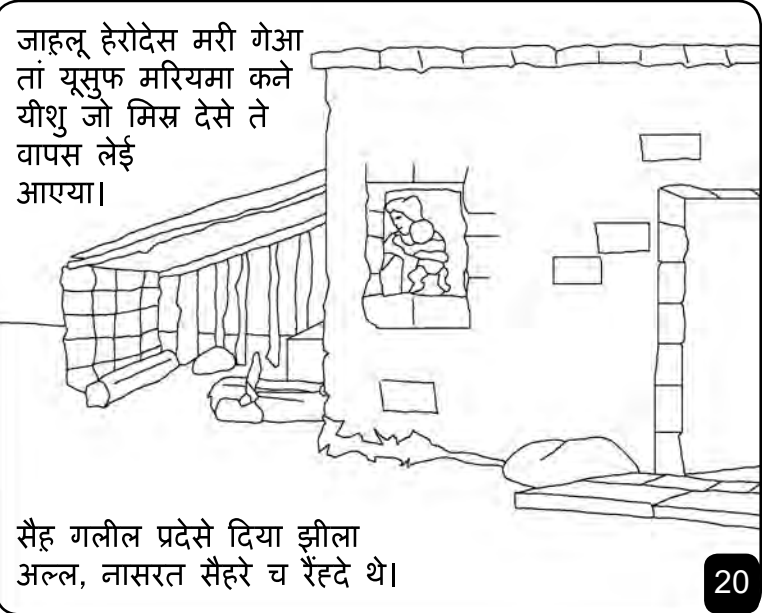 जाह़लू हेरोदेस मरी गेआ
तां यूसुफ मरियमा कने
यीशु जो मिस्र देसे ते
वापस लेई
आएया।
सैह़ गलील प्रदेसे दिया झीला
अल्ल, नासरत सैहरे च रैंह्दे थे।
20